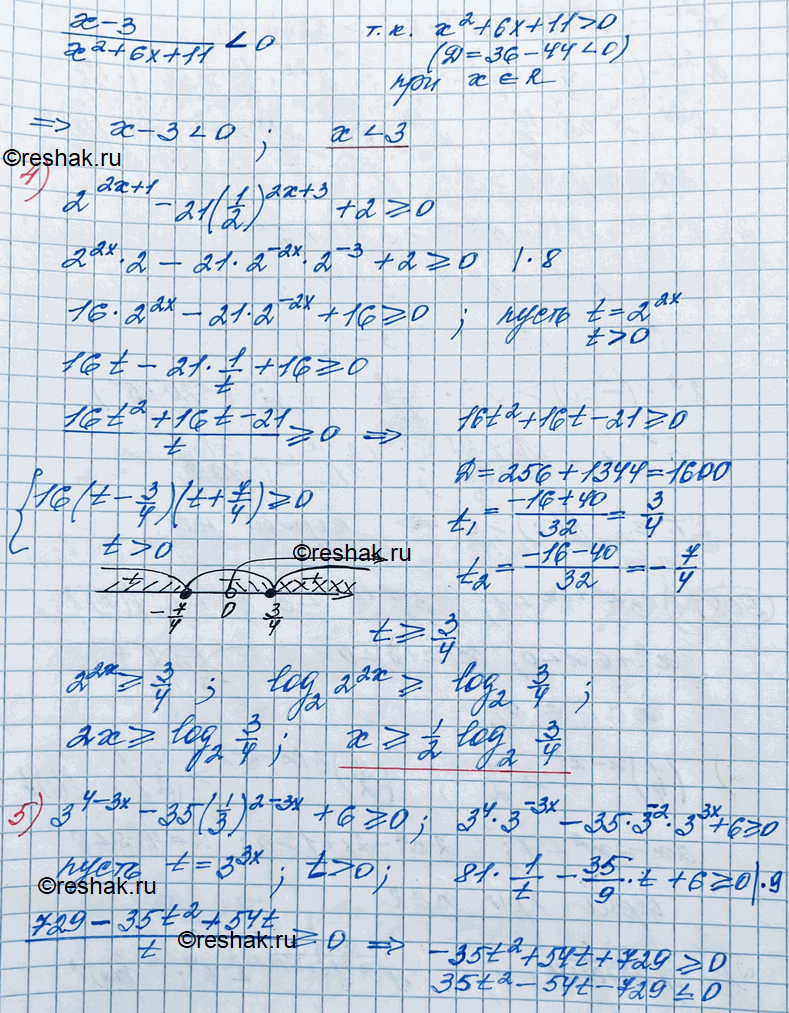 (x-3)/(x²+6x+11) < 0    т.к. x²+6x+11>0
(D=36-44<0)
при x ∈ R
=> x-3<0 ; x<3
©reshak.ru
4)
2^(2x+1) - 21(1/2)^(2x+3) + 2 ≥ 0
2^(2x)·2 - 21·2^(-2x)·2^(-3) + 2 ≥ 0 |·8
16·2^(2x) - 21·2^(-2x) + 16 ≥ 0 ; пусть t = 2^(2x)
t>0
16t - 21·1/t + 16 ≥ 0
(16t²+16t-21)/t ≥ 0 => 16t²+16t-21 ≥ 0
D = 256+1344 = 1600
{16(t-3/4)(t+7/4) ≥ 0    t₁ = (-16+40)/32 = 3/4
t>0
©reshak.ru
t₂ = (-16-40)/32 = -7/4
+ - +
-7/4 0 3/4
t ≥ 3/4
2^(2x) ≥ 3/4 ; log₂ 2^(2x) ≥ log₂ 3/4 ;
2x ≥ log₂ 3/4 ; x ≥ 1/2 log₂ 3/4
5) 3^(4-3x) - 35(1/3)^(2-3x) + 6 ≥ 0 ; 3^4·3^(-3x) - 35·3^(-2)·3^(3x) + 6 ≥ 0
пусть t = 3^(3x) ; t>0 ; 81·1/t - 35/9·t + 6 ≥ 0 |·9
©reshak.ru
(729 - 35t² + 54t)/t ≥ 0 => -35t²+54t+729 ≥ 0
©reshak.ru
35t²-54t-729 ≤ 0